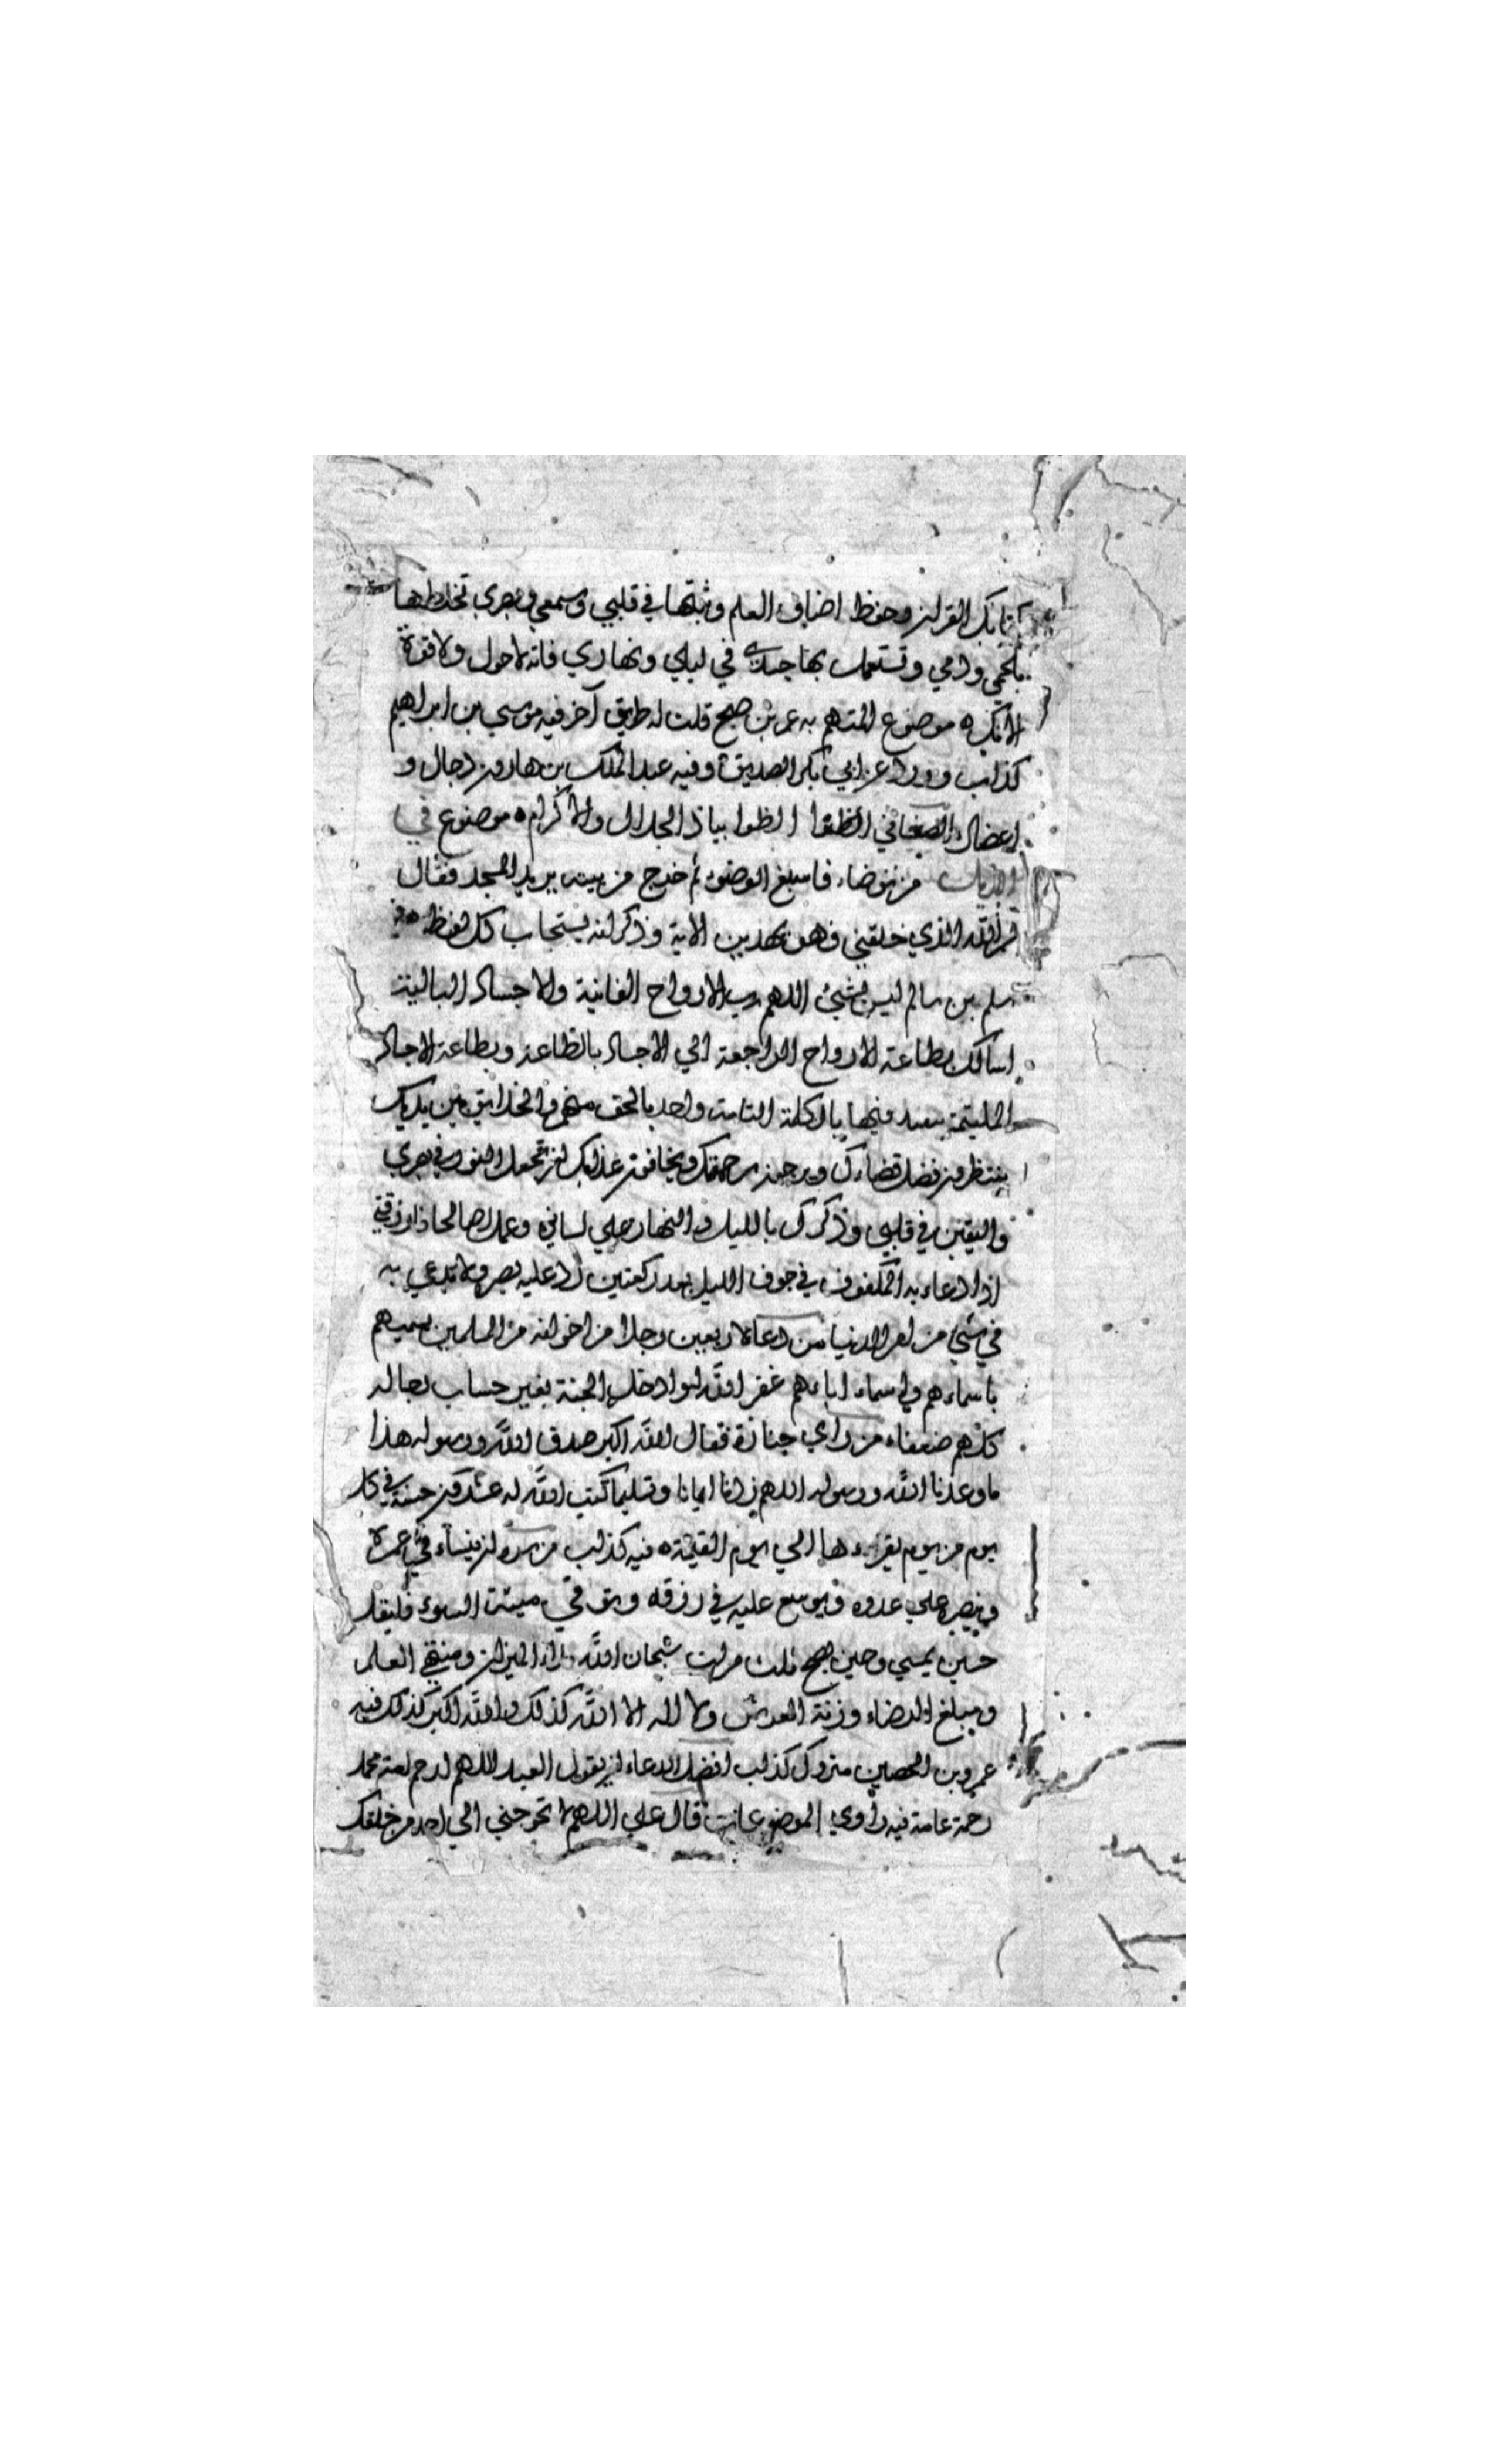 كتابك القران وحفظ اصناف العلم وثبتها في قلبي وسمعي وبصري تخلطها
بلحمي ودمي وتستعمل بها جسدي في ليلي ونهاري فانه لاحول ولاقوة
الا بك ه موضوع المتهم به عمر بن صبح قلت له طريق آخر فيه موسي بن ابراهيم
كذاب وورد عن ابي بكر الصديق وفيه عبد الملك بن هارون دجال و
اعضال الصغاني الظوا الظوا بياذ الجلال والاكرام ه موضوع في
الذيل من توضاء فاسبغ الوضوء ثم خرج من بيته يريد المسجد فقال
بسم الله الذي خلقني فهو يهدين الاية وذكر انه يستجاب كل لفظ ه فيه
سلم بن سالم ليس بشيئ اللهم رب الارواح الفانية والاجساد البالية
اسالك بطاعة الارواح الراجعة الي الاجساد بالطاعة وبطاعة الاجساد
الملتيمة بعيد فيها بالكلمة التامة واحد بالحق منهم والخلايق بين يديك
ينتظرون فضل قضاءك ويرجون رحمتك ويخافون عذابك ان تجعل النور في بصري
واليقين في قلبي وذكرك بالليل والنهار علي لساني وعملا صالحا فارزقني
اذا دعاء به المكفوف في جوف الليل بعد ركعتين رد عليه بصره ولا يدعي به
في شيئ من امر الدنيا من دعا لاربعين رجلا من اخوانه من المسلمين يسميهم
باسماءهم واسماء اباءهم غفر الله له وادخله الجنة بغير حساب رجاله
كلهم ضعفاء من راي جنازة فقال الله اكبر صدق الله ورسوله هذا
ماوعدنا الله ورسوله اللهم زدنا ايمانا وتسليما كتب الله له عشرون حسنة في كل
يوم من يوم يقرءها الي يوم القيمة ه فيه كذاب من سره ان ينساء في عمره
وينصر علي عدوه ويوسع عليه في رزقه ويوقي ميتة السوء فليقل
حين يمسي وحين يصبح ثلث مرات سبحان الله ملء الميزان ومنتهي العلم
ومبلغ الرضاء وزنة العرش ولا اله الا الله كذلك والله اكبر كذلك فيه
عمرو بن الحصين متروك كذاب افضل الدعاء ان يقول العبد اللهم ارحم امة محمد
رحمة عامة فيه راوي الموضوعات قال علي اللهم لا تحوجني الي احد من خلقك